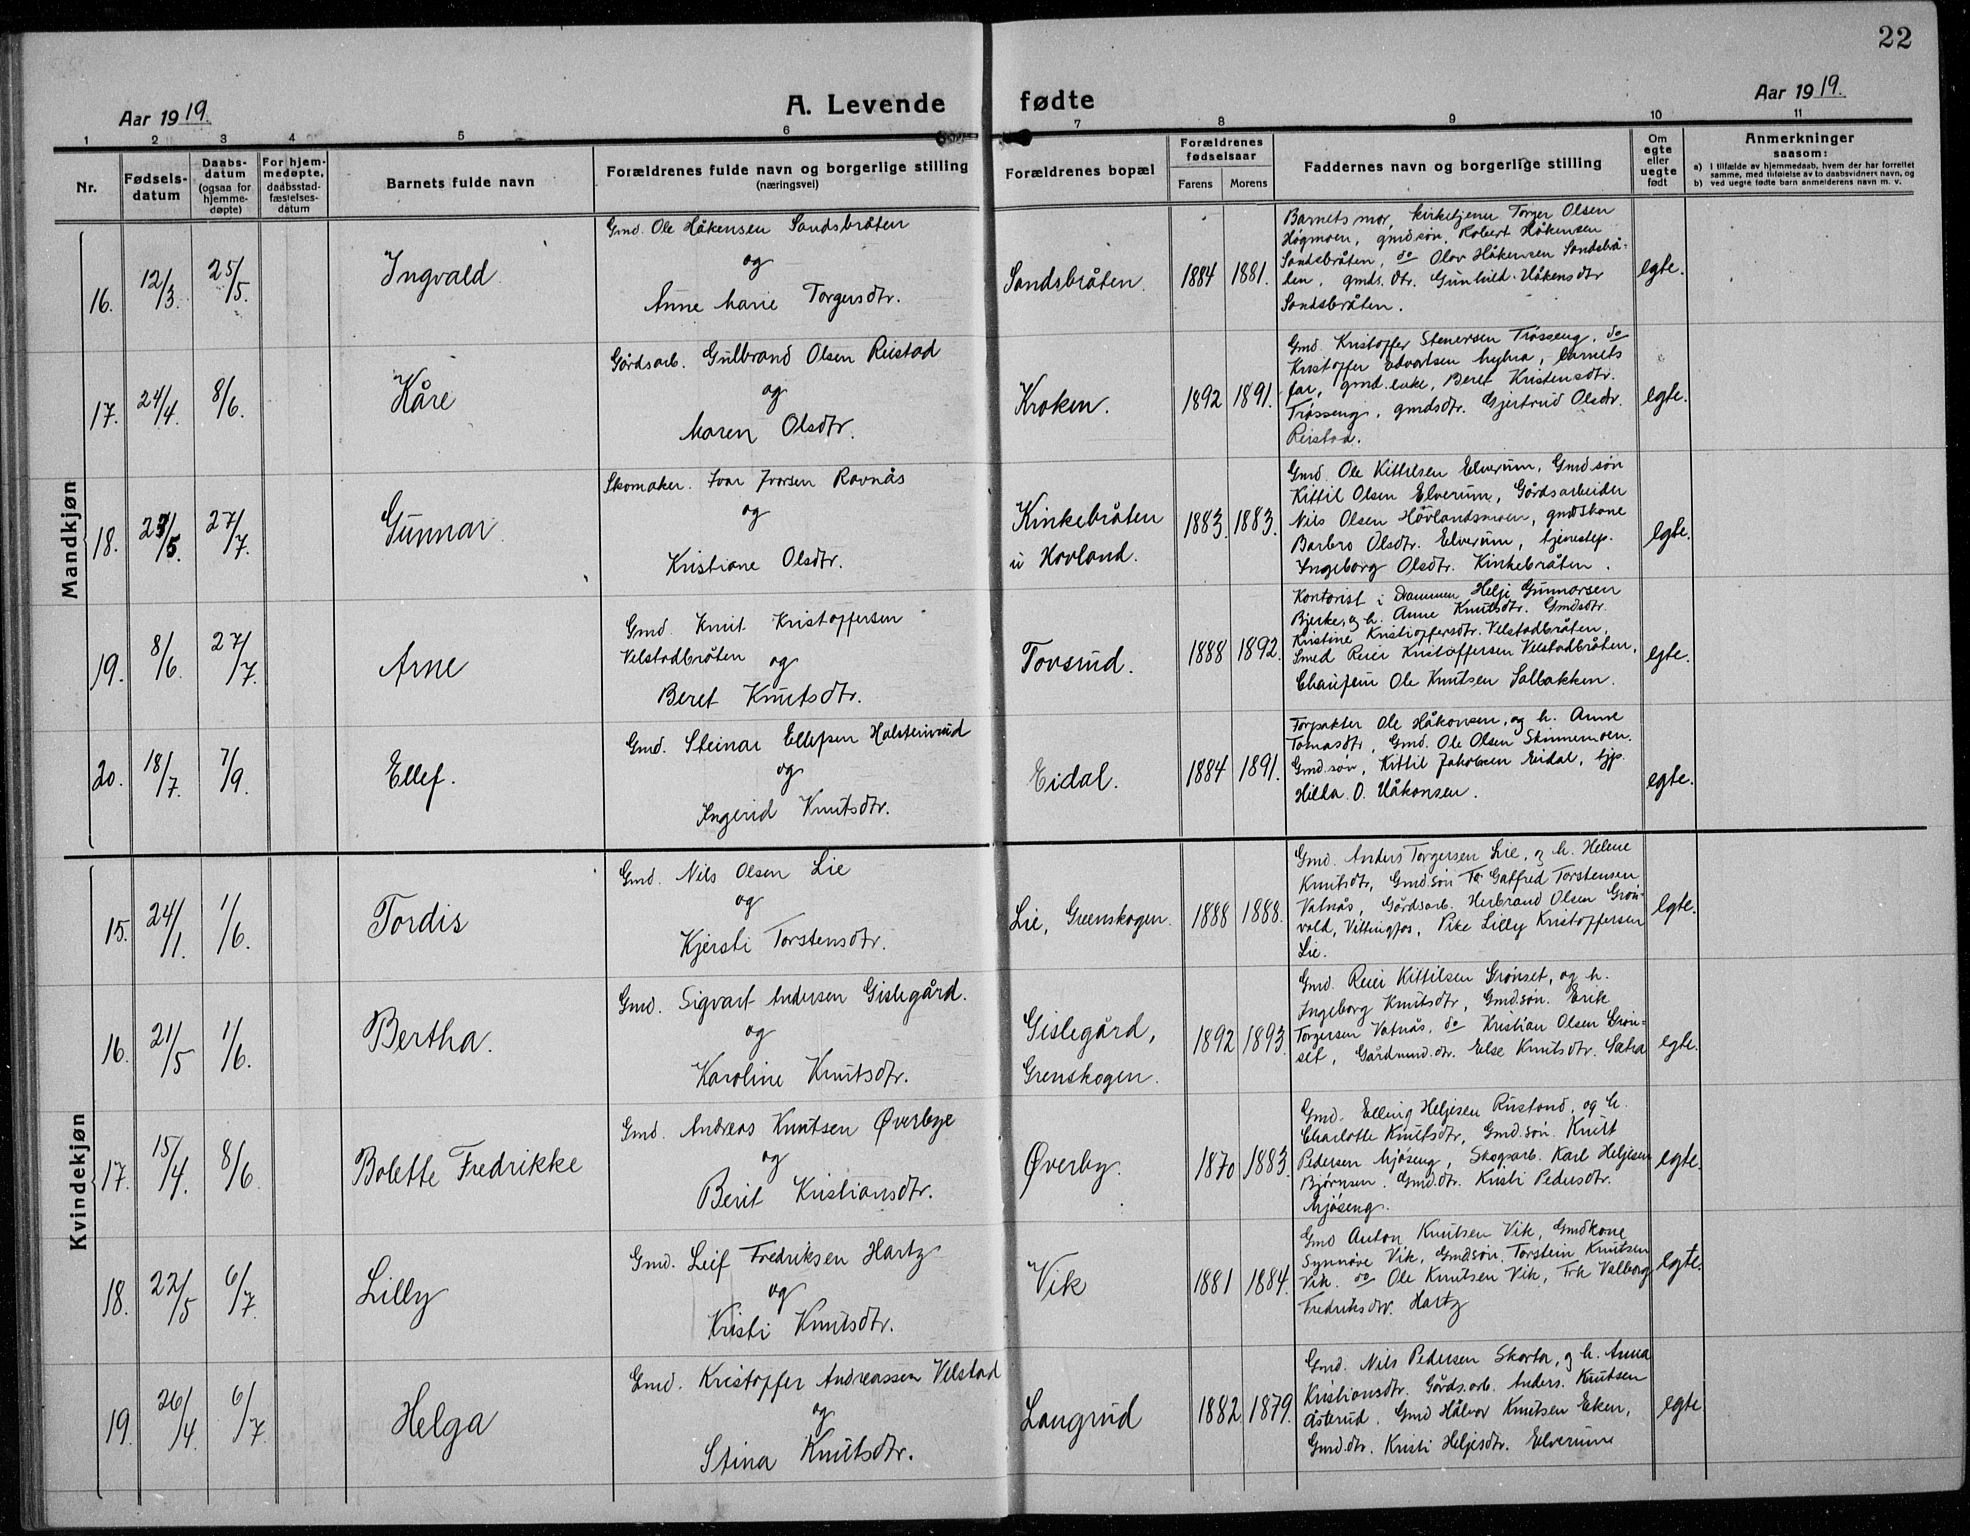 22
Aar 1919.
A. Levende fødte
Aar 1919.
1 2 3 4 5 6 7 8 9 10 11
Nr.
Fødsels-
datum
Daabs-
datum
(ogsaa for
hjemme-
døpte)
For hjem-
medøpte,
daabsstad-
fæstelses-
datum
Barnets fulde navn
Forældrenes fulde navn og borgerlige stilling
(næringsvei)
Forældrenes bopæl
Forældrenes
fødselsaar
Farens Morens
Faddernes navn og borgerlige stilling
Om
egte
eller
uegte
født
Anmerkninger
saasom:
a) I tilfælde av hjemmedaab, hvem der har forrettet
samme, med tilføielse av to daabsvidners navn, og
b) ved uegte fødte barn anmelderens navn m. v.
Mandkjøn
16. 12/3 25/5. Ingvald
Gmd. Ole Håkensen Sandsbråten
og
Anne Marie Torgersdtr.
Sandsbråten. 1884 1881.
Barnets mor, kirketjener Torger Olsen
Høgmoen, gmdsøn, Robert Håkensen
Sandsbråten, do Olav Håkensen Sandsbrå-
ten, gmds. dtr. Gunhild Håkensdtr
Sandsbråten.
egte.
17. 24/4. 8/6. Kåre
Gårdsarb. Gulbrand Olsen Reistad
og
Maren Olsdtr.
Kroken. 1892 1891.
Gmd. Kristoffer Stenersen Trøsseng, do
Kristoffer Edvardsen Myhra, barnets
far, gmd. enke, Beret Kristensdtr.
Trøsseng, gmdsdtr. Gjertrud Olsdtr.
Reistad.
egte.
18. 23/5. 27/7. Gunnar
Skomaker. Ivar Ivarsen Ravnås
og
Kristiane Olsdtr.
Kinkebråten
u Hovland. 1883. 1883.
Gmd. Ole Kittelsen Elverum, Gmdsøn
Kittil Olsen Elverum, Gårdsarbeider
Nils Olsen Høvlandsmoen, gmdskone
Barbro Olsdtr. Elverum, tjenestep.
Ingeborg Olsdtr. Kinkebråten.
egte.
19. 8/6. 27/7. Arne
Gmd. Knut Kristoffersen
Velstadbråten og
Beret Knutsdtr.
Tovsrud. 1888 1892.
Kontorist i Drammen Helje Gunnarsen
Bjerke, og h. Anne Knutsdtr. Gmdsdtr.
Kristine Kristoffersdtr. Velstadbråten,
Smed Reier Kristoffersen Velstadbråten,
Chaufeur Ole Knutsen Solbakken.
egte.
20. 18/7. 7/9. Ellef.
Gmd. Steinar Ellefsen Holsteinrud
og
Ingerid Knutsdtr.
Eidal. 1884 1891.
Forpakter Ole Håkonsen, og h. Anne
Tomasdtr, Gmd. Ole Olsen Skinnemoen.
Gmdsøn, Kittil Jakobsen Eidal, tjp.
Hilla. O. Håkonsen.
egte.
Kvindekjøn
15. 24/1. 1/6. Tordis
Gmd. Nils Olsen Lie
og
Kjersti Torstensdtr.
Lie, Grenskogen. 1888 1888.
Gmd. Anders Torgersen Lie, og h. Helene
Knutsdtr, Gmd.søn Gotfred Torstensen
Vatnås, Gårdsarb. Herbrand Olsen Grøn-
vold, Vittingfos, Pike Lilly Kristoffersen
Lie.
egte.
16. 21/5 1/6. Bertha.
Gmd. Sigvart Andersen Gislegård.
og
Karoline Knutsdtr.
Gislegård,
Grenskogen. 1892 1893.
Gmd. Reier Kittilsen Grønset, og h.
Ingeborg Knutsdtr, Gmd.søn. Erik
Torgersen Vatnås, do Kristian Olsen Grøn-
set, Gårdmd.dtr. Else Knutsdtr. Sætra
egte.
17. 15/4. 8/6. Bolette Fredrikke
Gmd. Andreas Knutsen Øverbye
og
Berit Kristiansdtr.
Øverby. 1870 1883.
Gmd. Elling Heljesen Rustand, og h.
Charlotte Knutsdtr, Gmd.søn. Knut
Pedersen Mjøseng, Skogsarb. Karl Heljesen
Bjørnsen. Gmd.dtr. Kristi Pedersdtr.
Mjøseng.
egte.
18. 22/5 6/7. Lilly
Gmd. Leif Fredriksen Hartz
og
Kristi Knutsdtr.
Vik 1881 1884.
Gmd Anton Knutsen Vik, Gmdkone
Synnøve Vik, Gmdsøn. Torstein Knutsen
Vik. do Ole Knutsen Vik, Frk Valborg
Fredriksdtr. Hartz
egte.
19. 26/4 6/7. Helga
Gmd. Kristoffer Andreassen Velstad
og
Stina Knutsdtr.
Langrud 1882. 1879.
Gmd. Nils Pedersen Skarta, og h. Anna
Kristiansdtr. Gårds.arb. Anders. Knutsen
Åsterud. Gmd Halvor Knutsen Eken,
Gmd.dtr. Kristi Heljesdtr. Elverum
egte